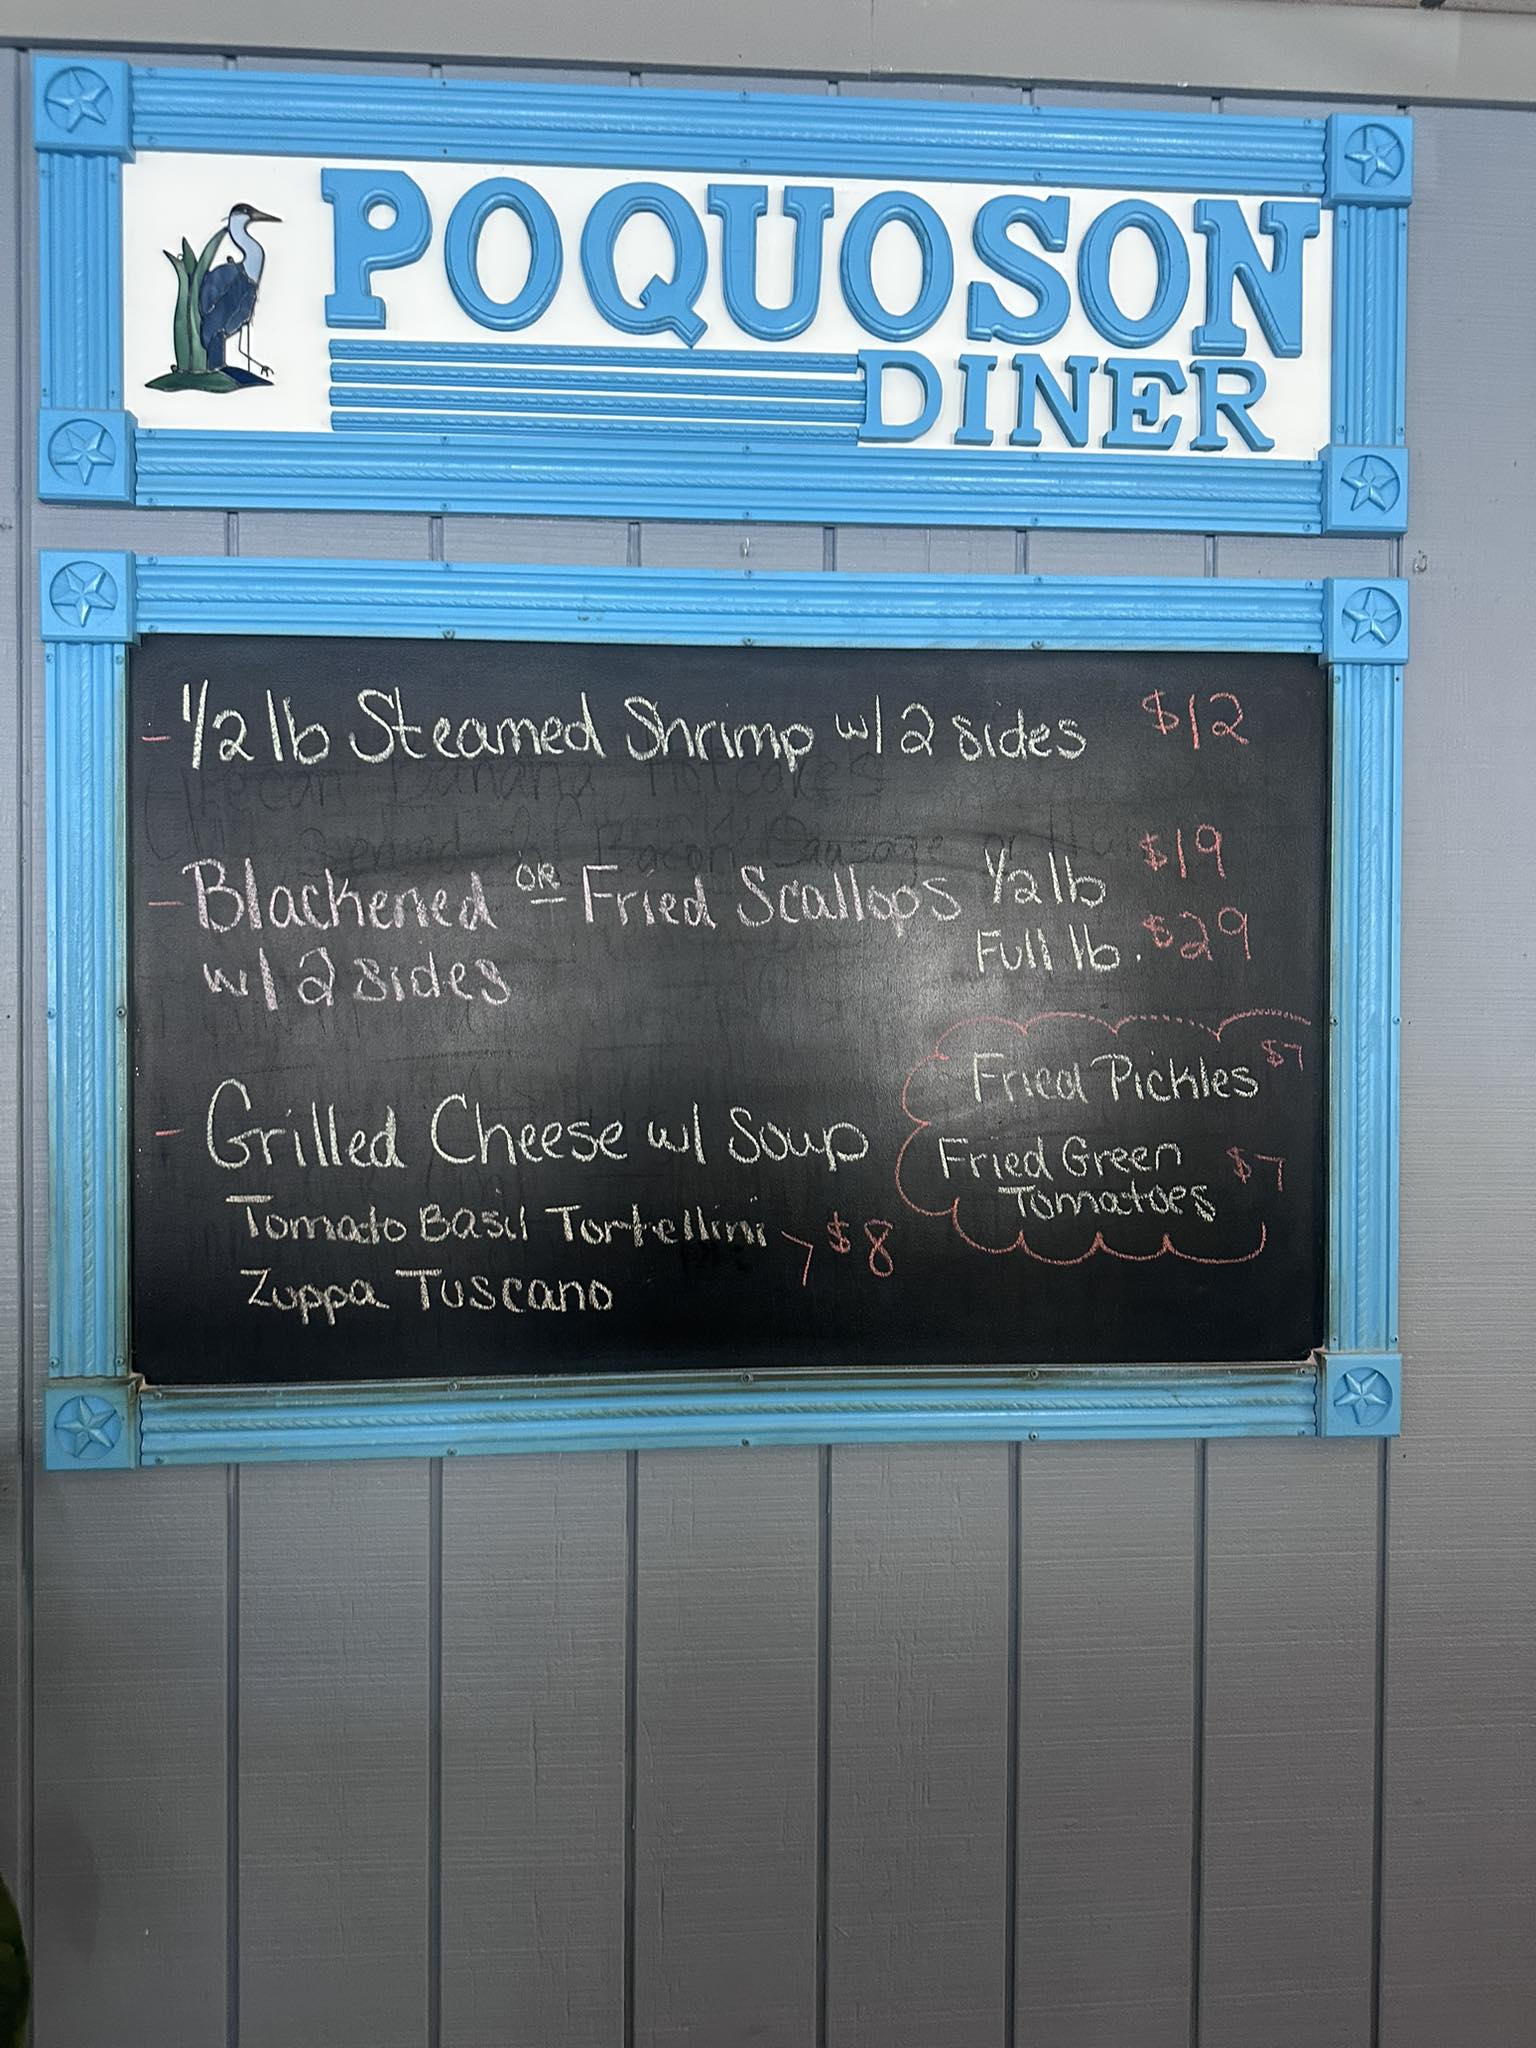 POQUOSON
DINER
- 1/2 lb Steamed Shrimp w/ 2 sides $12
Pecan Banana Hotcakes
Served w/ Bacon, Sausage or Ham
- Blackened OR Fried Scallops 1/2 lb $19
w/ 2 sides Full lb. $29
Fried Pickles $7
Fried Green $7
Tomatoes
- Grilled Cheese w/ Soup
Tomato Basil Tortellini > $8
Zuppa Tuscano